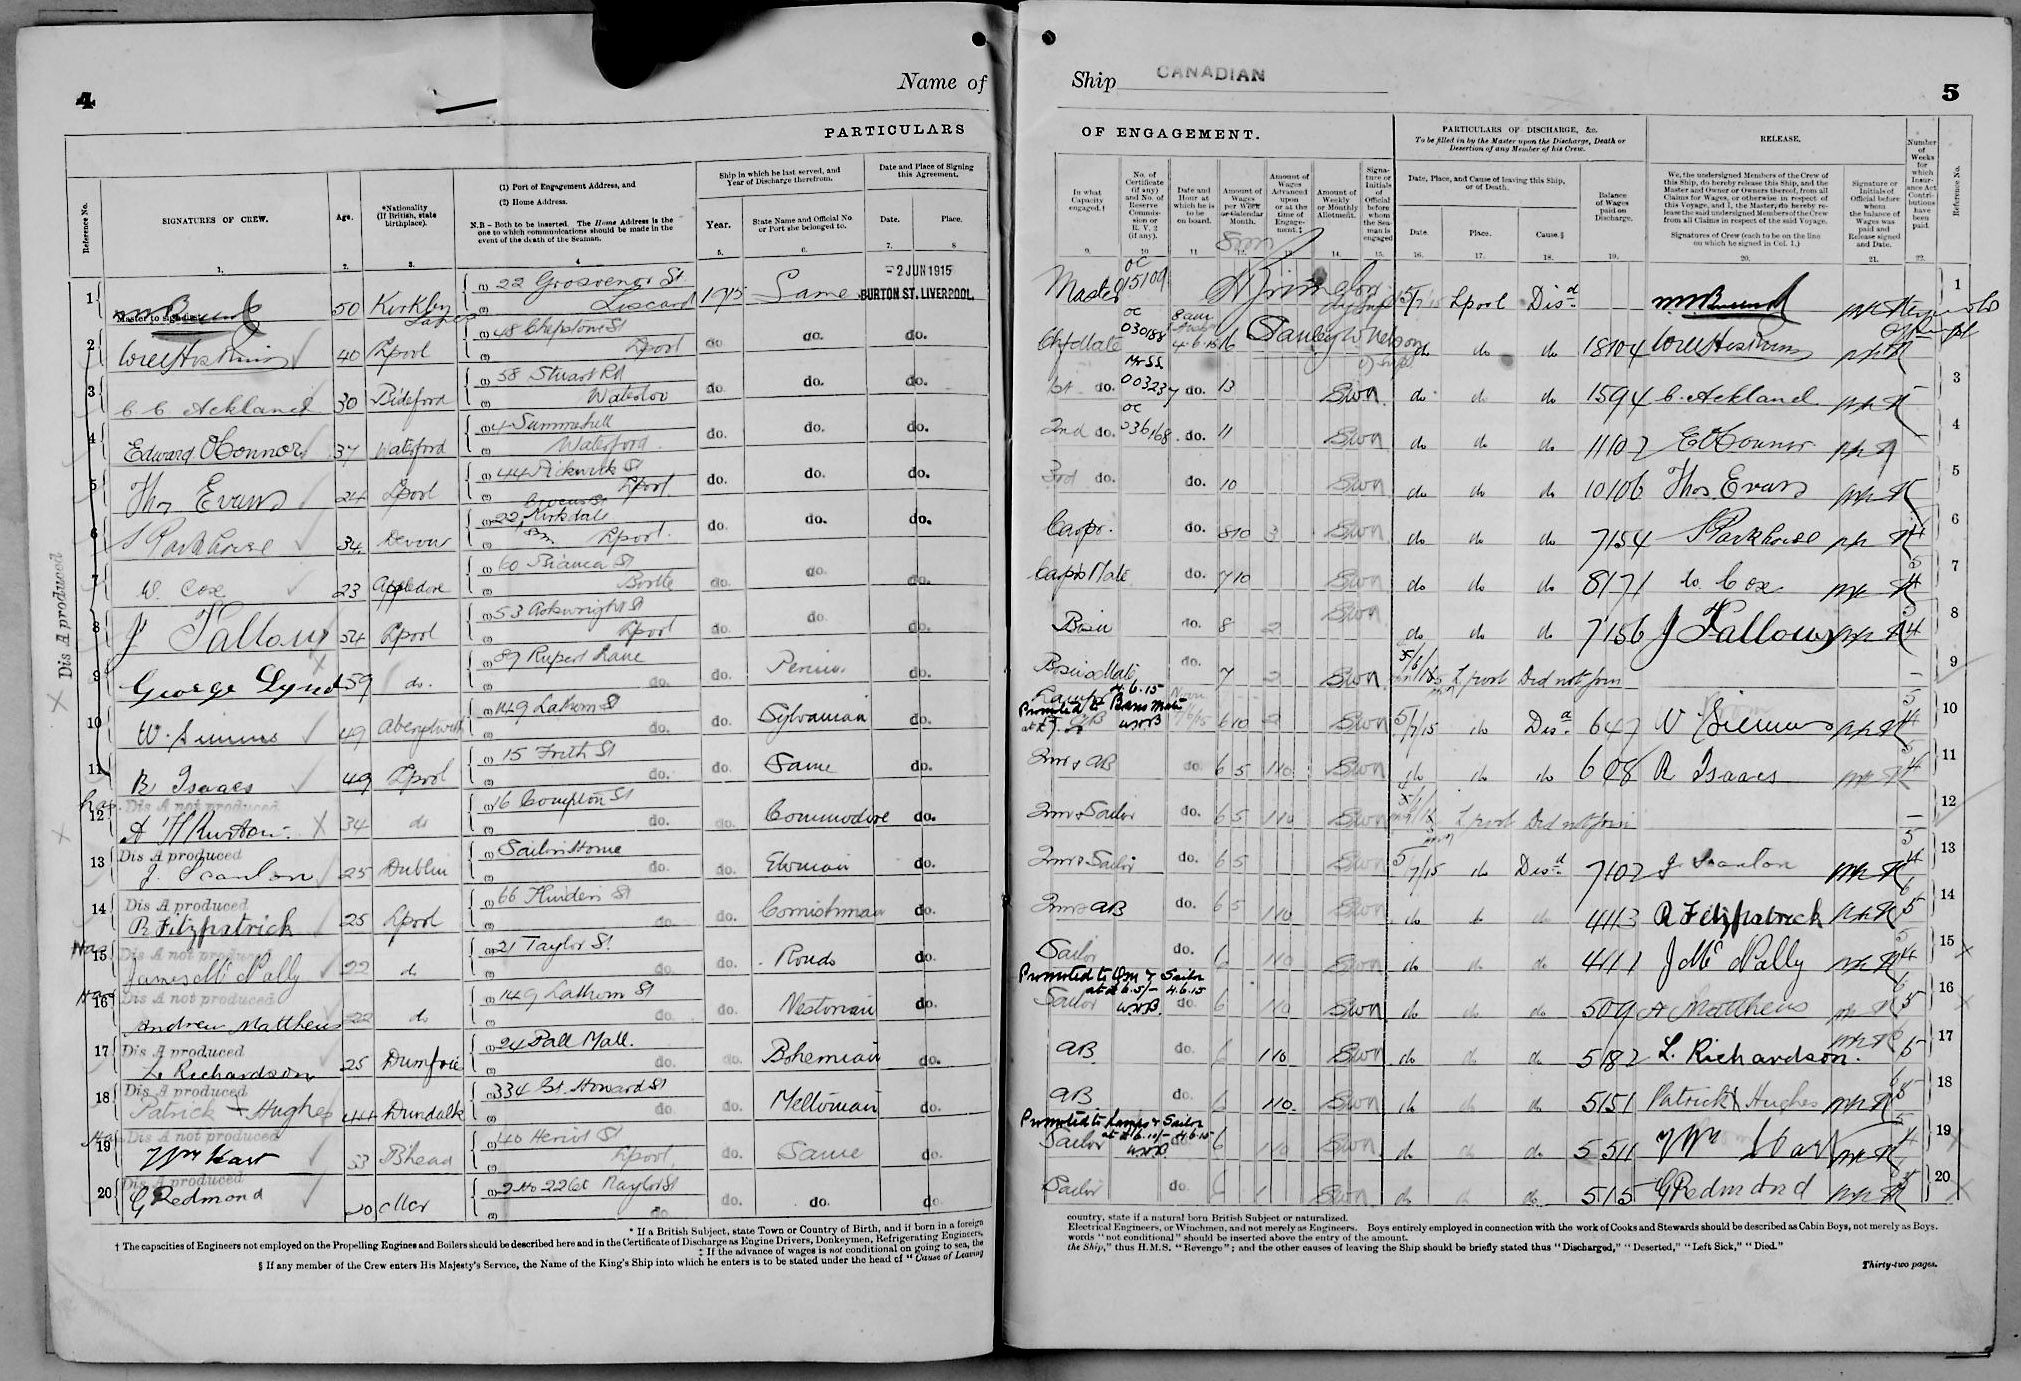 4
Name of
PARTICULARS
Reference No.
SIGNATURES OF CREW.
Age.
*Nationality
(If British, state
birthplace).
(1) Port of Engagement Address, and
(2) Home Address.
N.B - Both to be inserted. The Home Address is the
one to which communications should be made in the
event of the death of the Seaman.
Ship in which he last served, and
Year of Discharge therefrom.
Year.
State Name and Official No
or Port she belonged to.
Date and Place of Signing
this Agreement.
Date.
Place.
1. 2. 3. 4 5. 6. 7. 8
Dis A produced
1 50 Kirkby (1) 22 Grosvenor St 1915 Same - 2 JUN 1915
Master to sign first (2) Liscard BURTON ST. LIVERPOOL.
2 40 Lpool (1) 48 Chepstow St do do. do.
(2) Lpool
3 C. C. Ackland 30 Bideford (1) 58 Stuart Rd do. do. do.
(2) Waterloo
4 Edward O'Connor 37 Waterford (1) 4 Summerhill do. do. do.
(2) Waterford
5 Thos Evans 24 Lpool (1) 44 Pickwick St do. do. do.
(2) Lpool
6 S Parkhouse 34 Devon (1) 22 Kirkdale do. do. do.
(2) Lpool.
7 W. Cox 23 Appledore (1) 60 Bianca St do. do. do.
(2) Bootle
8 J Fallows 54 Lpool (1) 53 Arkwright St do. do. do.
(2) Lpool
9 George Lynd 59 do. (1) 89 Rupert Lane do. do.
(2) do.
10 W. Simms 49 Aberystwith (1) 149 Lathom St do. Sylvanian do.
(2) do.
11 R Isaacs 49 Lpool (1) 15 Frith St do. Same do.
(2) do.
Dis A not produced
12 34 do (1) 16 Compton St do. Commodore do.
(2) do.
Dis A produced
13 J. Scanlon 25 Dublin (1) Sailors Home do. Etonian do.
(2) do.
Dis A produced
14 R Fitzpatrick 25 Lpool (1) 66 St do. Cornishman do.
(2) do
Dis A not produced
15 James Mc Nally 22 do (1) 21 Taylor St. do. do.
(2) do
Dis A not produced
16 Andrew Matthews 22 do (1) 149 Lathom St do. Nestorian do.
(2) do
Dis A produced
17 L. Richardson 25 Dumfrie (1) 24 Pall Mall. do. Bohemian do.
(2) do.
Dis A produced
18 Patrick Hughes 44 Dundalk (1) 334 Gt. Howard St do. Meltonian do.
(2) do.
Dis A not produced
19 Wm Hart 33 Bhead (1) 40 Heriot St do. Same do.
(2) Lpool
Dis A produced
20 G Redmond 20 (1) 2 Ho 22 Ct Naylor St do. do. do
(2) do
* If a British Subject, state Town or Country of Birth, and if born in a foreign
† The capacities of Engineers not employed on the Propelling Engines and Boilers should be described here and in the Certificate of Discharge as Engine Drivers, Donkeymen, Refrigerating Engineers,
‡ If the advance of wages is not conditional on going to sea, the
§ If any member of the Crew enters His Majesty's Service, the Name of the King's Ship into which he enters is to be stated under the head of "Cause of Leaving
Ship CANADIAN
5
OF ENGAGEMENT.
PARTICULARS OF DISCHARGE, &c.
To be filled in by the Master upon the Discharge, Death or
Desertion of any Member of his Crew.
RELEASE.
In what
Capacity
engaged.†
No. of
Certificate
(if any)
and No. of
Reserve
Commis-
sion or
R. V. 2
(if any).
Date and
Hour at
which he is
to be
on board.
Amount of
Wages
per Week
or Calendar
Month.
Amount of
Wages
Advanced
upon
or at the
time of
Engage-
ment.‡
Amount of
Weekly
or Monthly
Allotment.
Signa-
ture or
Initials
of
Official
before
whom
the Sea-
man is
engaged
Date, Place, and Cause of leaving this Ship,
or of Death.
Date.
Place.
Cause.§
Balance
of Wages
paid on
Discharge.
We, the undersigned Members of the Crew of
this Ship, do hereby release this Ship, and the
Master and Owner or Owners thereof, from all
Claims for Wages, or otherwise in respect of
this Voyage, and I, the Master, do hereby re-
lease the said undersigned Members of the Crew
from all Claims in respect of the said Voyage.
Signatures of Crew (each to be on the line
on which he signed in Col. 1.)
Signature or
Initials of
Official before
whom
the balance of
Wages was
paid and
Release signed
and Date.
Number
of
Weeks
for
which
Insur-
ance Act
Contri-
butions
have
been
paid.
Reference No.
9. 10 11 12. 13. 14. 15. 16. 17. 18. 19. 20. 21. 22.
Master OC 15109 5/7/15 Lpool Disd 1
Chf Mate OC 030188 8am 4.6.15 16 Stanley W Nelson do do do 18104 2
1st do. 003237 do. 13 SWN do do do 1594 C. Ackland 3
2nd do. OC 036168 do. 11 SWN do do do 1107 E O'Connor 4
3rd do. do. 10 SWN do do do 10106 Thos. Evans 5
Carpr. do. 8 10 3 SWN do do do 7154 S Parkhouse 4 6
Carps Mate do. 7 10 SWN do do do 8171 W. Cox 5 4 7
Bosn do. 8 2 SWN do do do 7156 J Fallows 5 4 8
Bosns Mate do. 7 2 SWN Lpool Did not join 9
Lamps 4.6.15
Promoted to Bosns Mate
& AB WRB 6 10 2 SWN 5/7/15 do Disd 647 W Simms 5 4 10
Qmr & AB do 6 5 1 10 SWN do do do 608 R Isaacs 5 4 11
Qmr & Sailor do. 6 5 1 10 SWN Lpool Did not join 12
Qmr & Sailor do. 6 5 SWN 5/7/15 do Disd 7107 J Scanlon 5 4 13
Qmr & AB do. 6 5 1 10 SWN do do do 4113 R Fitzpatrick 5 14
Sailor do. 6 1 10 SWN do do do 4111 J Mc Nally 5 4 15
Promoted to Qm & Sailor
at £6.5/- 4.6.15
Sailor WRB. do. 6 1 10 SWN do do do 509 A Matthews 5 16
AB do. 6 1 10 SWN do do do 5182 L. Richardson. 5 17
AB do. 6 1 10. SWN do do do 5151 Patrick Hughes 5 18
Promoted to Lamps & Sailor
at £6.10/- 4.6.15
Sailor WRB. 6 1 10 SWN do do do 5511 Wm Hart 5 4 19
Sailor do. 6 1 SWN do do do 515 G Redmond 5 20
country, state if a natural born British Subject or naturalized.
Electrical Engineers, or Winchmen, and not merely as Engineers. Boys entirely employed in connection with the work of Cooks and Stewards should be described as Cabin Boys, not merely as Boys.
words "not conditional" should be inserted above the entry of the amount.
the Ship," thus H.M.S. "Revenge"; and the other causes of leaving the Ship should be briefly stated thus "Discharged," "Deserted," "Left Sick," "Died."
Thirty-two pages.